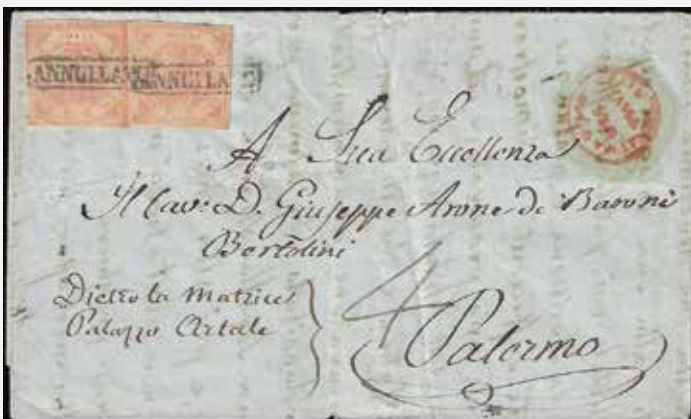 ANNULLATO ANNULLATO
A Sua Eccellenza
Il Cav: D. Giuseppe Arone de Baroni
Bortolini
Dietro la Matrice
Palazzo Artale
4
Palermo